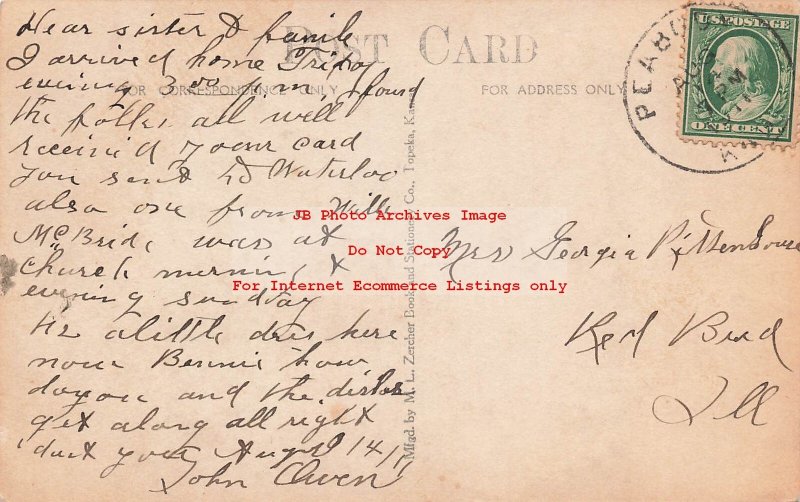 Dear sister & family
POST CARD
I arrived home Friday
evening 3:00 P.m. & found
FOR CORRESPONDENCE ONLY
FOR ADDRESS ONLY
the folks all well
received your card
you sent to Waterloo
also one from Wille
McBride was at
church morning &
evening sunday
its a little dry here
now Bennie how
do you and the dishes
get along all right
dont you Aug 14/11
John Owen
Mrs Georgia Pittenhouse
Red Bud
Ill
U.S. POSTAGE
ONE CENT
PEABODY
AUG
PM
Mfgd. by M. L. Zercher Book and Stationery Co., Topeka, Kansas
JB Photo Archives Image
Do Not Copy
For Internet Ecommerce Listings only